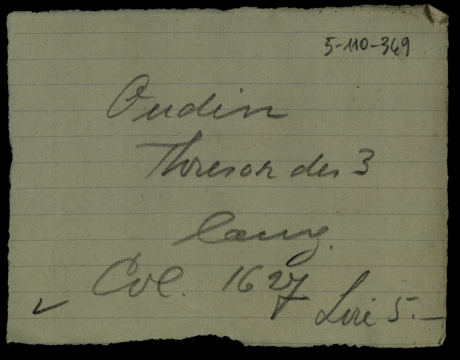 5-110-369
Oudin
Thresor des 3
lang.
Col. 1627
Lire 5.—